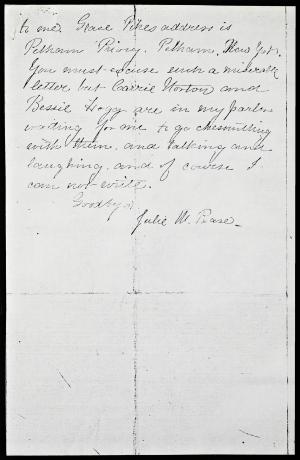 to me. Grace Pikes address is
Pelham Priory. Pelham, New York.
You must excuse such a miserable
letter but Carrie Norton and
Bessie Hogg are in my parlor
waiting for me to go chesnutting
with them, and talking and
laughing and of course I
can not write.
Goodbye
Julie M. Pease